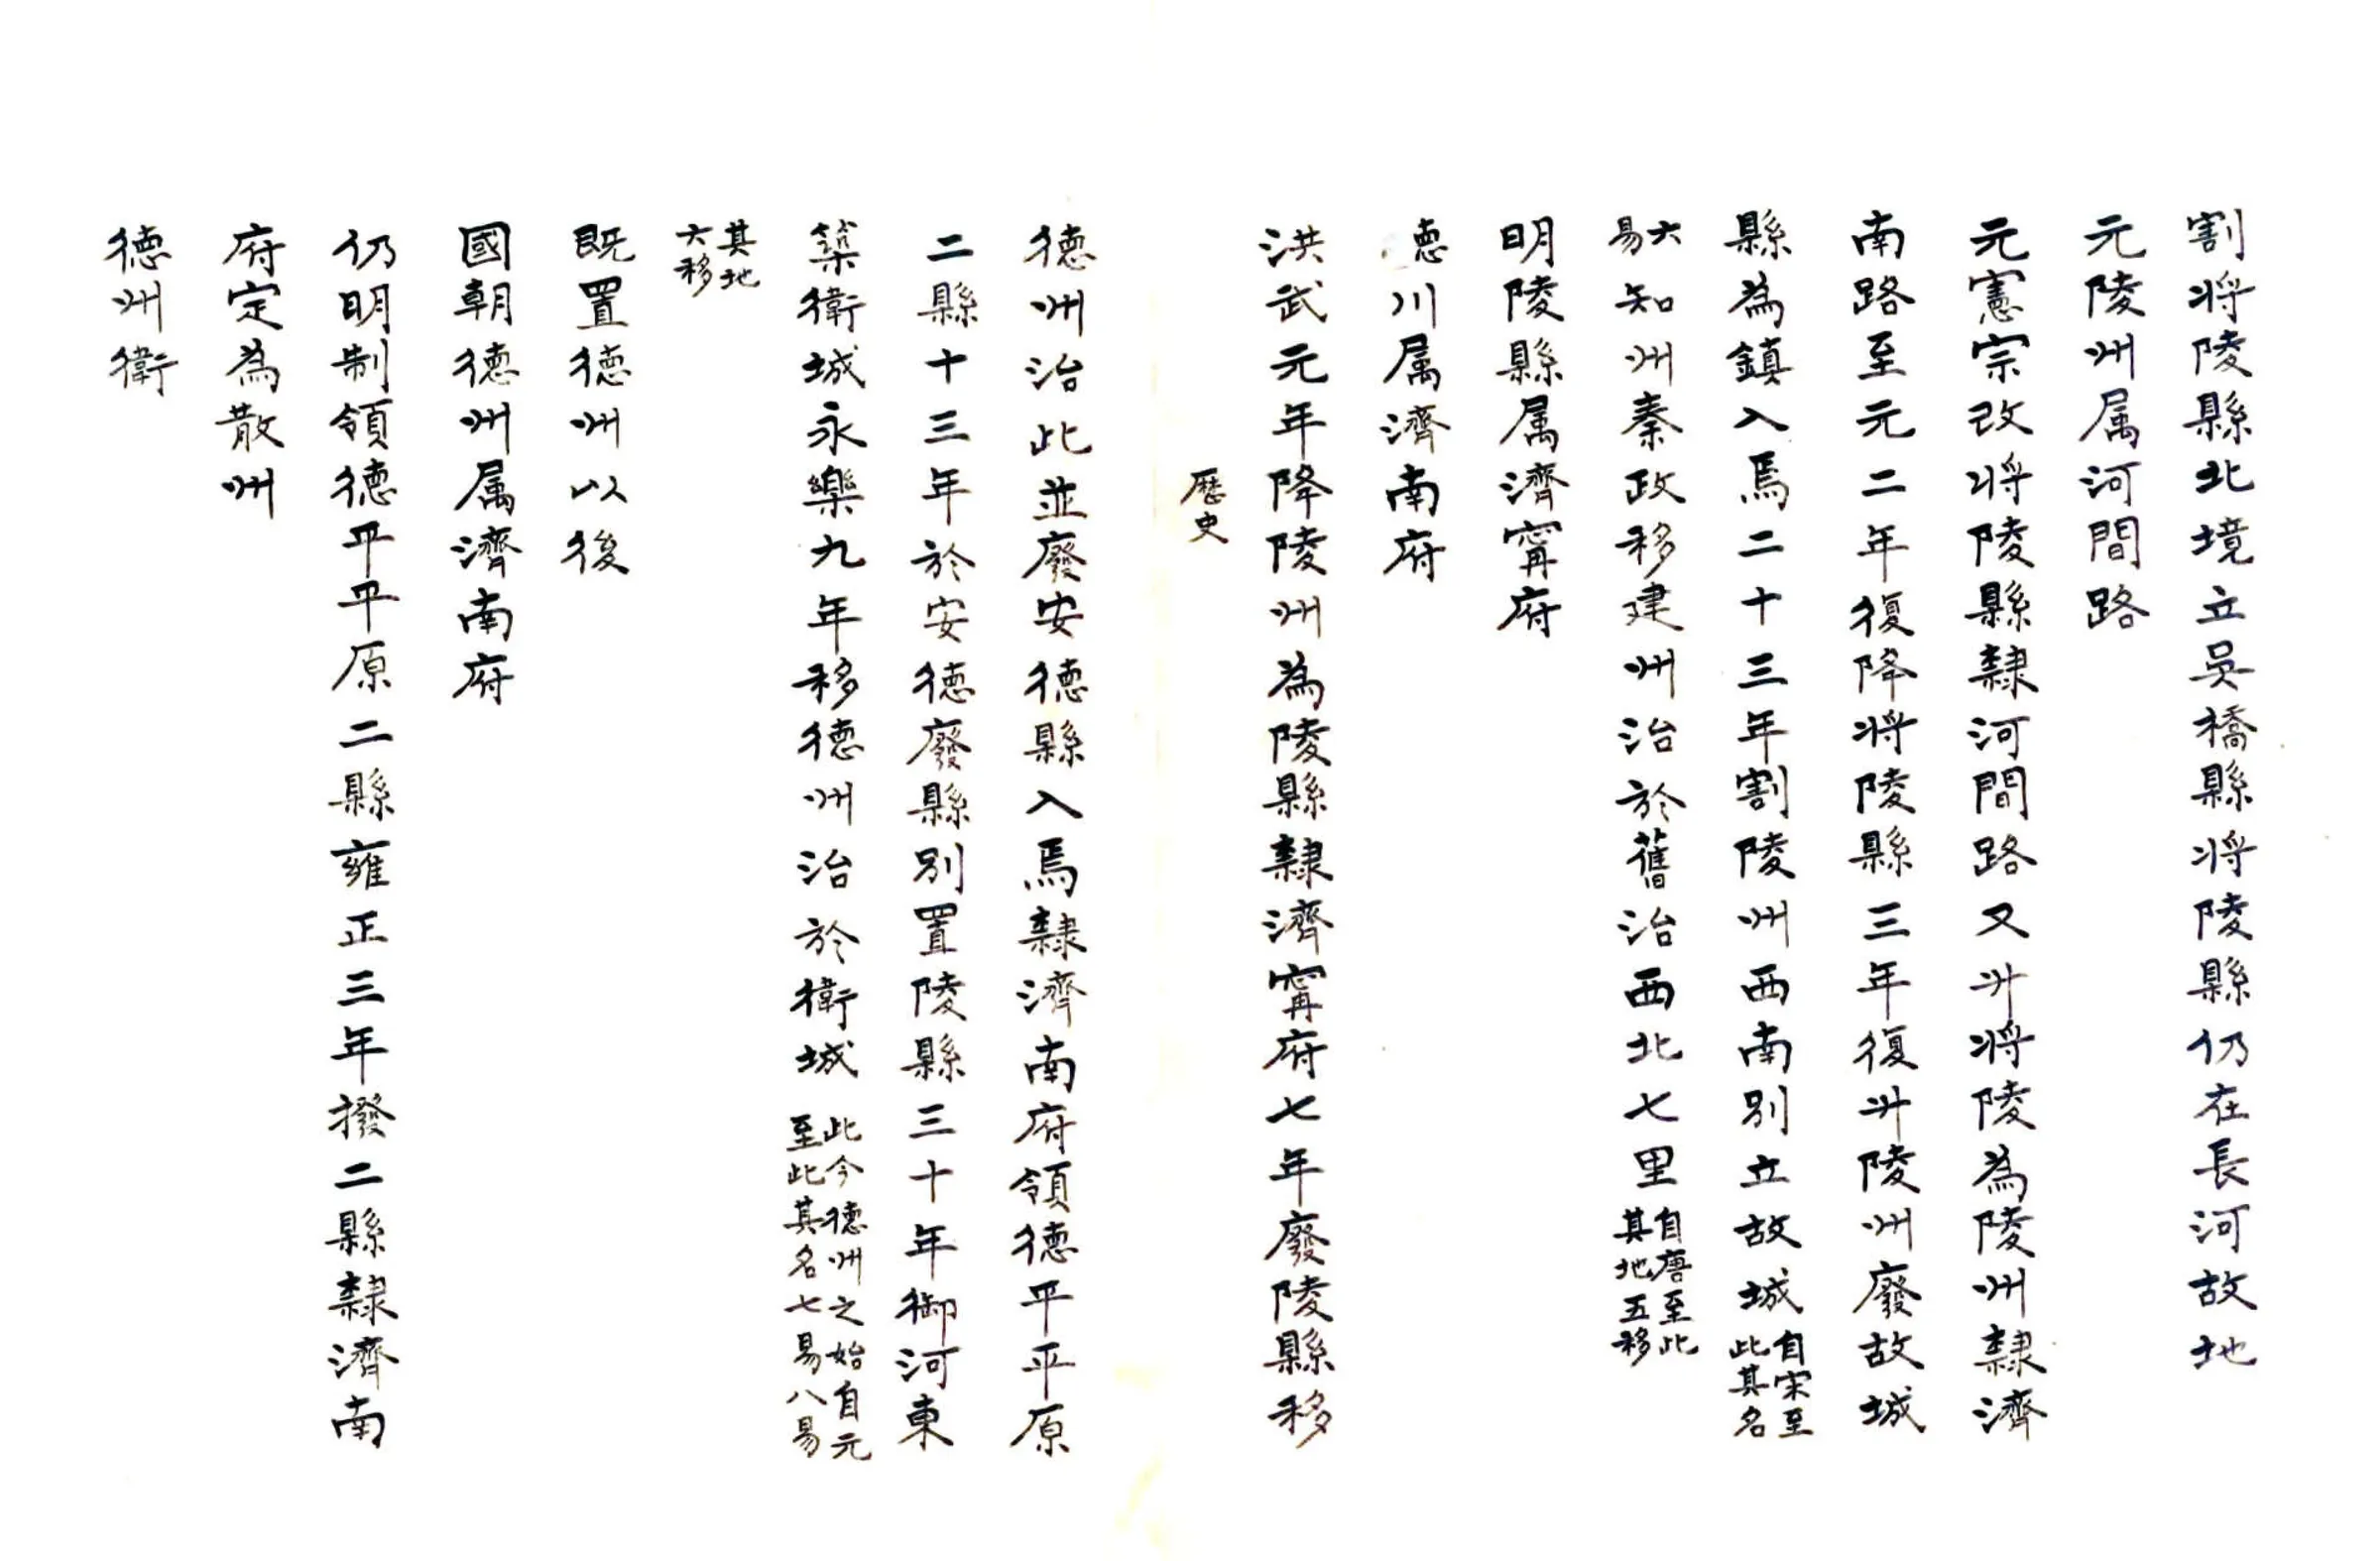 割将陵縣北境立吳橋縣将陵縣仍在長河故地
元陵州属河間路
元憲宗改将陵縣隸河間路又升将陵為陵州隸濟
南路至元二年復降将陵縣三年復升陵州廢故城
縣為鎮入焉二十三年割陵州西南別立故城自宋至此其名
六易知州秦政移建州治於舊治西北七里自唐至此其地五移
明陵縣属濟寗府
德川属濟南府
洪武元年降陵州為陵縣隸濟寗府七年廢陵縣移
歷史
德州治此並廢安德縣入焉隸濟南府領德平平原
二縣十三年於安德廢縣別置陵縣三十年御河東
築衛城永樂九年移德州治於衛城此今德州之始自元至此其名七易八易
其地六移
既置德州以後
國朝德州属濟南府
仍明制領德平平原二縣雍正三年撥二縣隸濟南
府定為散州
德州衛